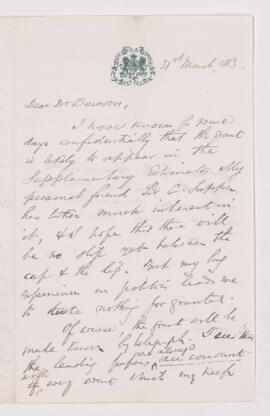 31st March, 83.
Dear Dr Dawson,
I have known for some
days confidentially that the grant
is likely to appear in the
Supplementary Estimates. My
personal friend Sir C. Tupper
has taken much interest in
it, & I hope that there will
be no slip yet between the
cup & the lip. But my long
experience in politics leads me
to take nothing for granted.
Of course, the grant will be
made known by telegraph. I see that
the leading papers are always au courant
of every event which may keep